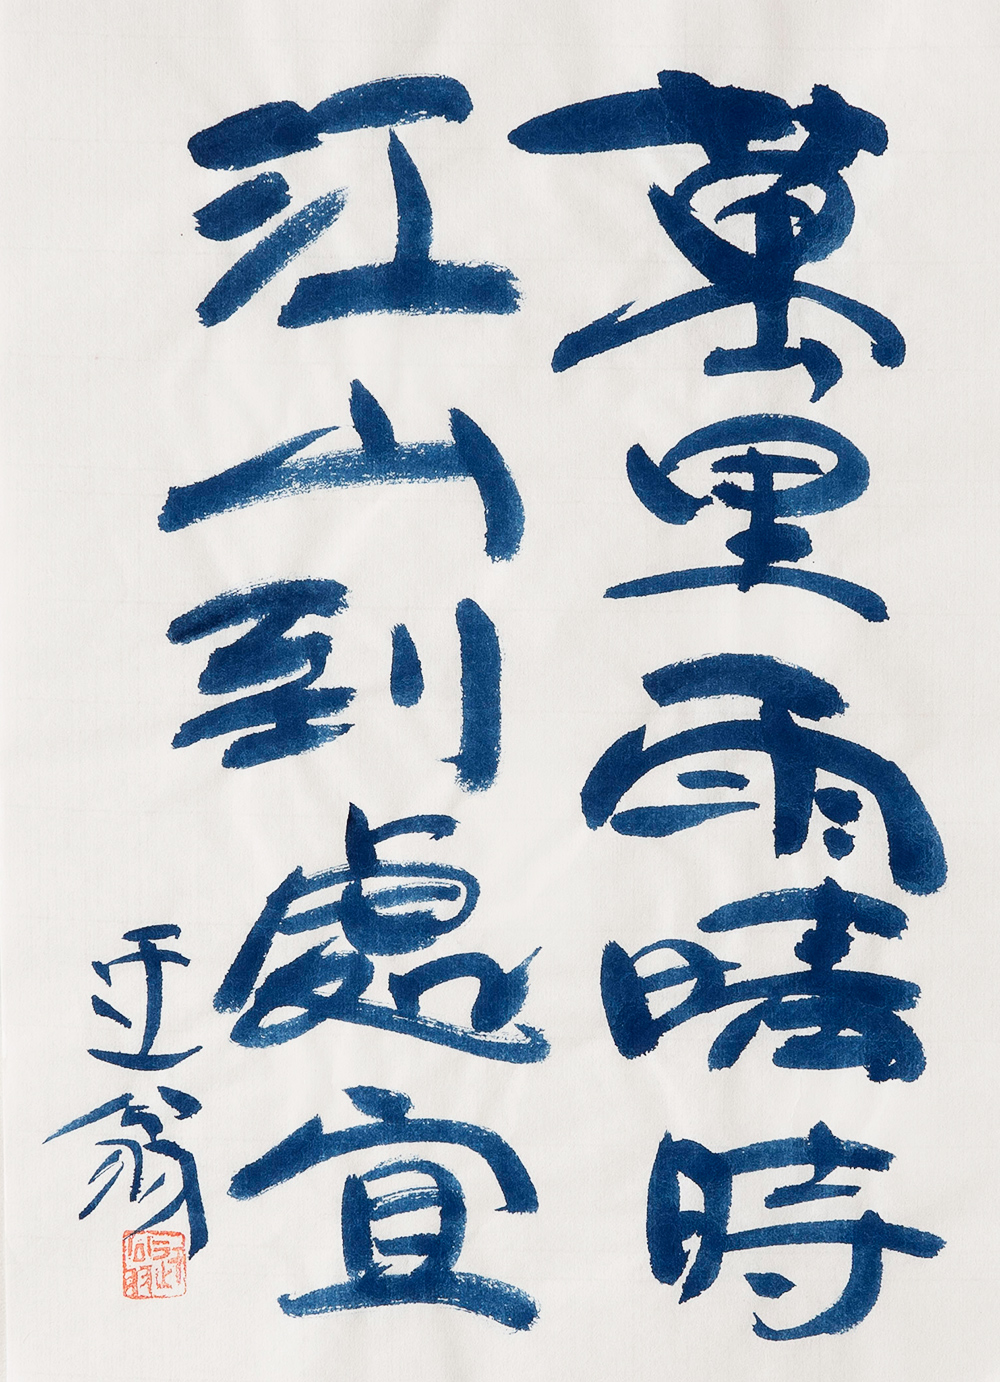 萬里雨晴時
江山到處宜
迂翁
迂翁